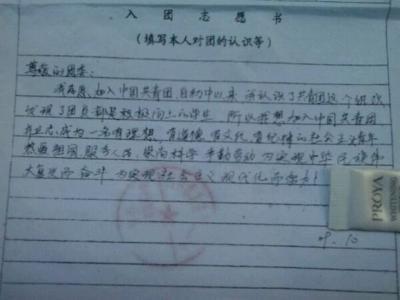 入团志愿书
(填写本人对团的认识等)
尊敬的团委:
我志愿加入中国共青团 自初中以来 认识了共青团这个组织
发现了团员都是积极向上的学生 所以我想加入中国共青团
成为一名有理想 有道德 有文化 有纪律的社会主义青年
热爱祖国 服务人民 崇尚科学 辛勤劳动 为实现中华民族伟
大复兴而奋斗 为实现社会主义现代化而
PROYA